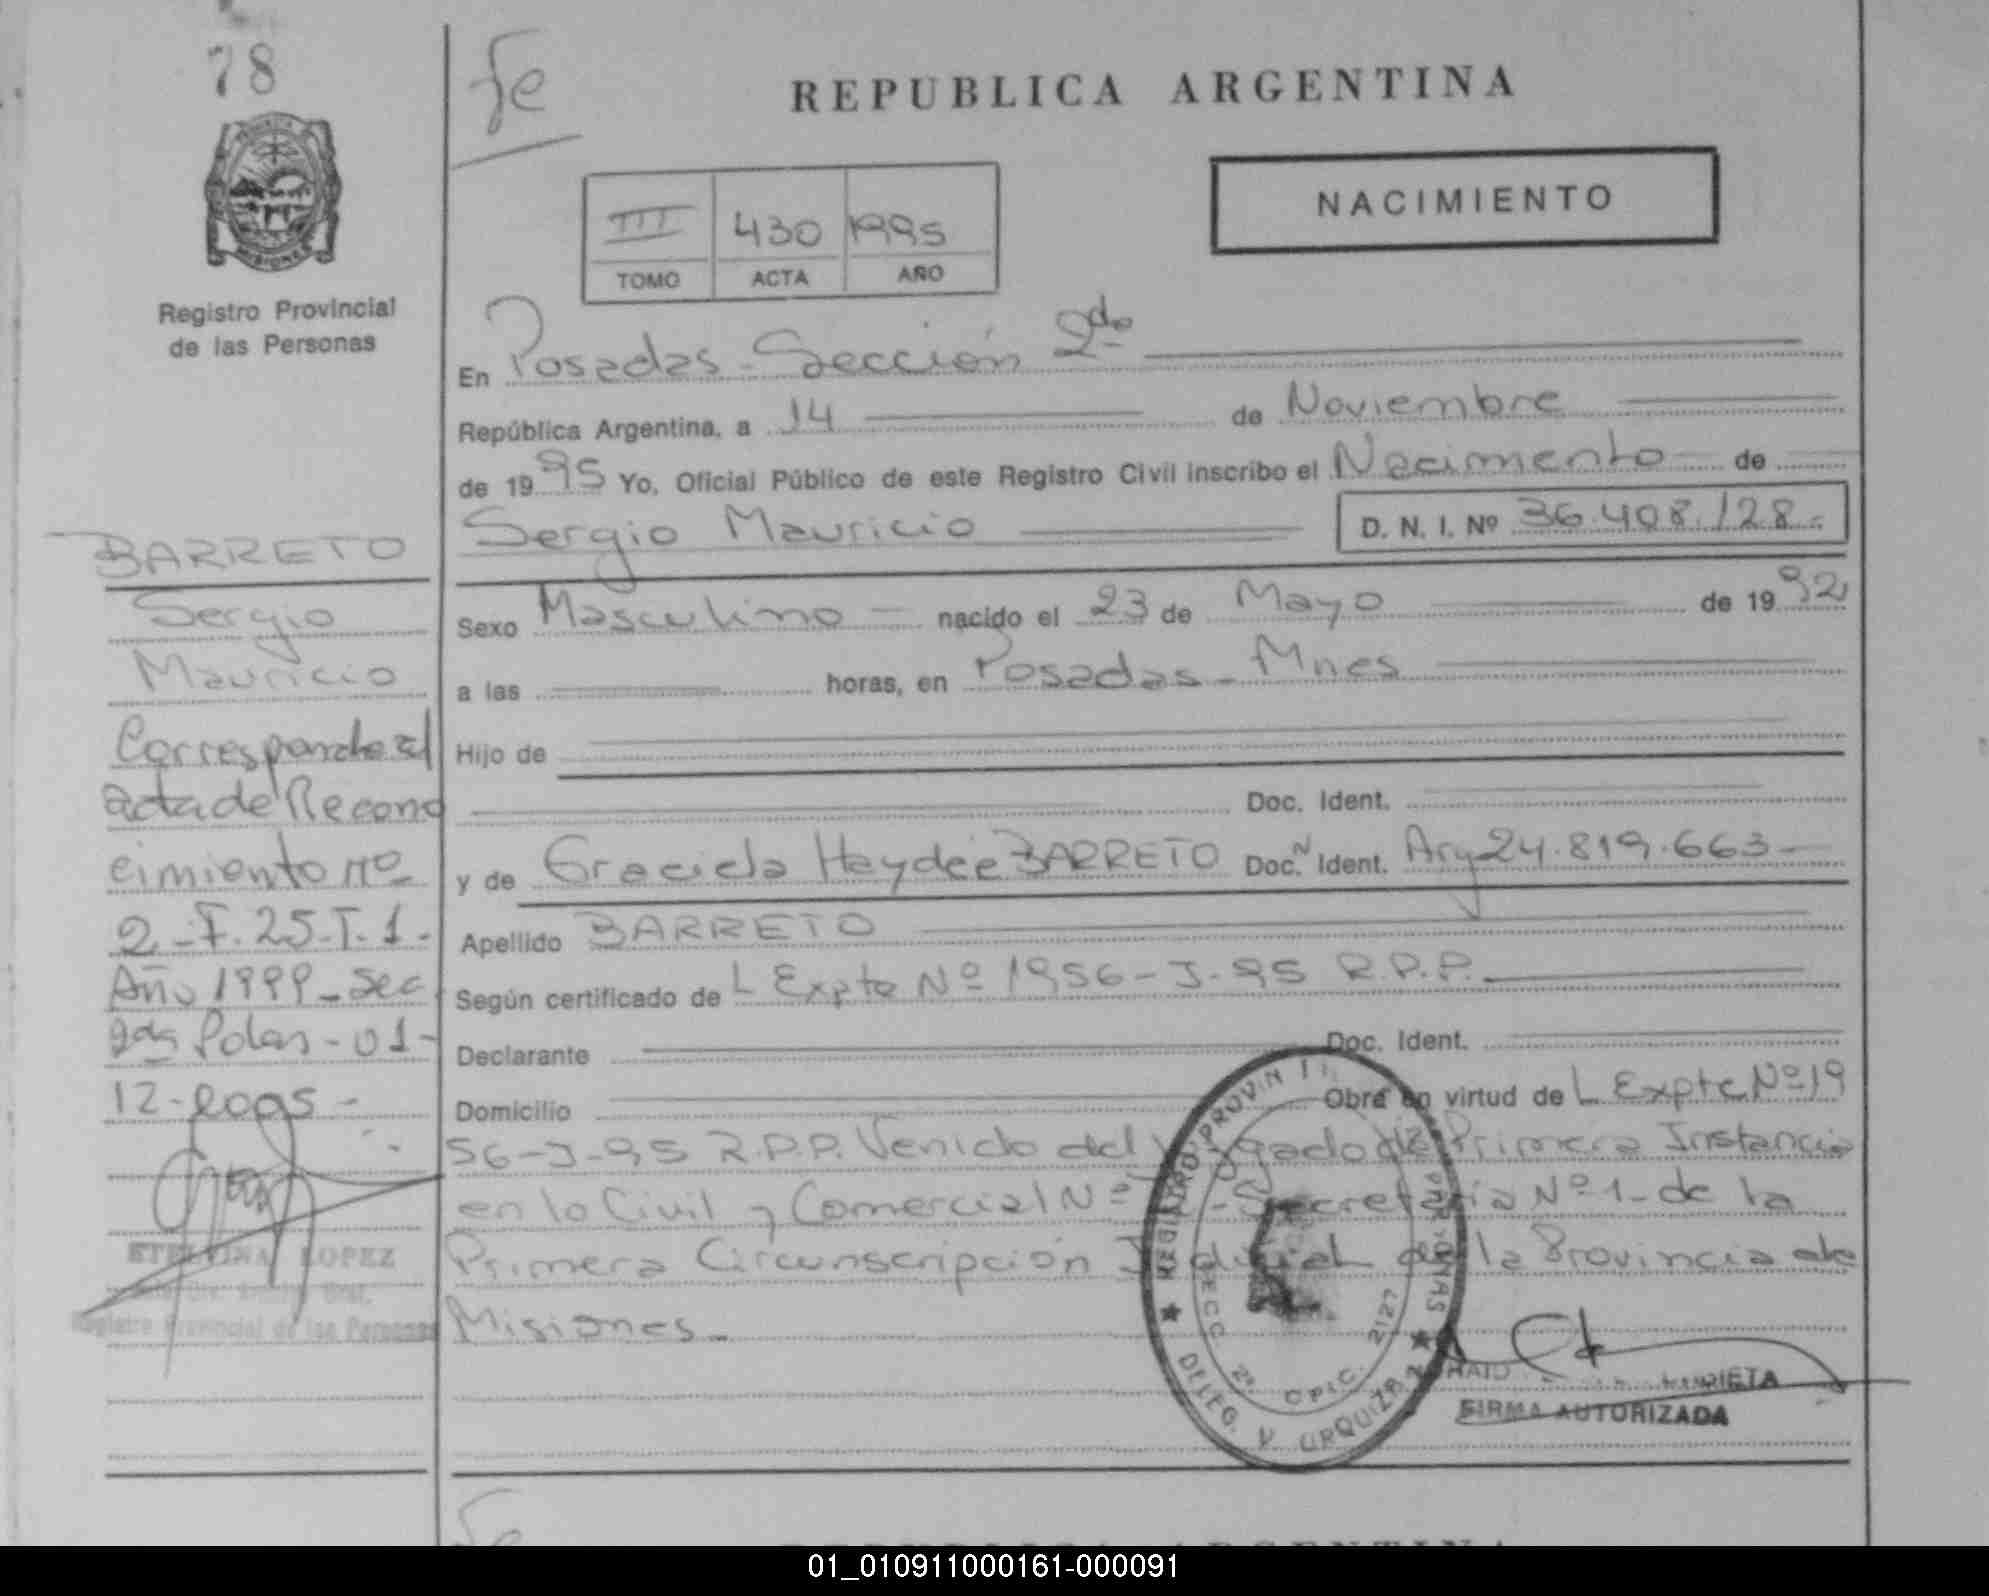 78
Fe
REPUBLICA ARGENTINA
NACIMIENTO
III 430 1995
TOMO ACTA AÑO
PROVINCIA
MISIONES
Registro Provincial
de las Personas
En Posadas - Sección 2da
República Argentina, a 14 de Noviembre
de 1995 Yo, Oficial Público de este Registro Civil inscribo el Nacimiento de
Sergio Mauricio D. N. I. Nº 36.408.128.-
Sexo Masculino nacido el 23 de Mayo de 1992
a las horas, en Posadas - Mnes
Hijo de
Doc. Ident.
y de Graciela Haydee BARRETO Doc. N Ident. Arg 24.819.663-
Apellido BARRETO
Según certificado de L Expte Nº 1956-J-95 R.P.P.
Declarante Doc. Ident.
Domicilio Obra en virtud de L Expte Nº 19
56-J-95 R.P.P. Venido del Juzgado de Primera Instancia
en lo Civil y Comercial Nº - Secretaria Nº 1 - de la
Primera Circunscripción Judicial de la Provincia de
Misiones -
BARRETO
Sergio
Mauricio
Corresponde al
acta de Recono
cimiento nº
2-F.25-T.1-
Año 1999-Sec
2da Pdas-01-
12-2005-
ETELVINA LOPEZ
Registro Provincial de las Personas
SECC. 2ª OFIC. 2127
DELEG. V URQUIZA
FIRMA AUTORIZADA
REPUBLICA ARGENTINA
01_010911000161-000091